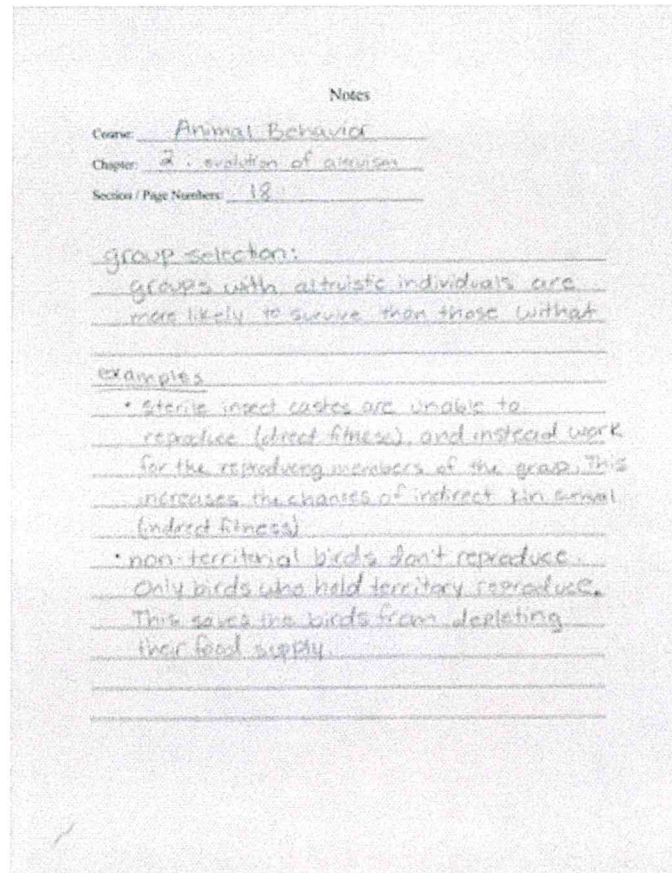 Notes
Course: Animal Behavior
Chapter: 2. evolution of altruism
Section / Page Numbers: 18
group selection:
groups with altruistic individuals are
more likely to survive than those without
examples
• sterile insect castes are unable to
reproduce (direct fitness), and instead work
for the reproducing members of the group. This
increases the chances of indirect kin survival
(indirect fitness)
• non-territorial birds don't reproduce.
Only birds who hold territory reproduce.
This saves the birds from depleting
their food supply